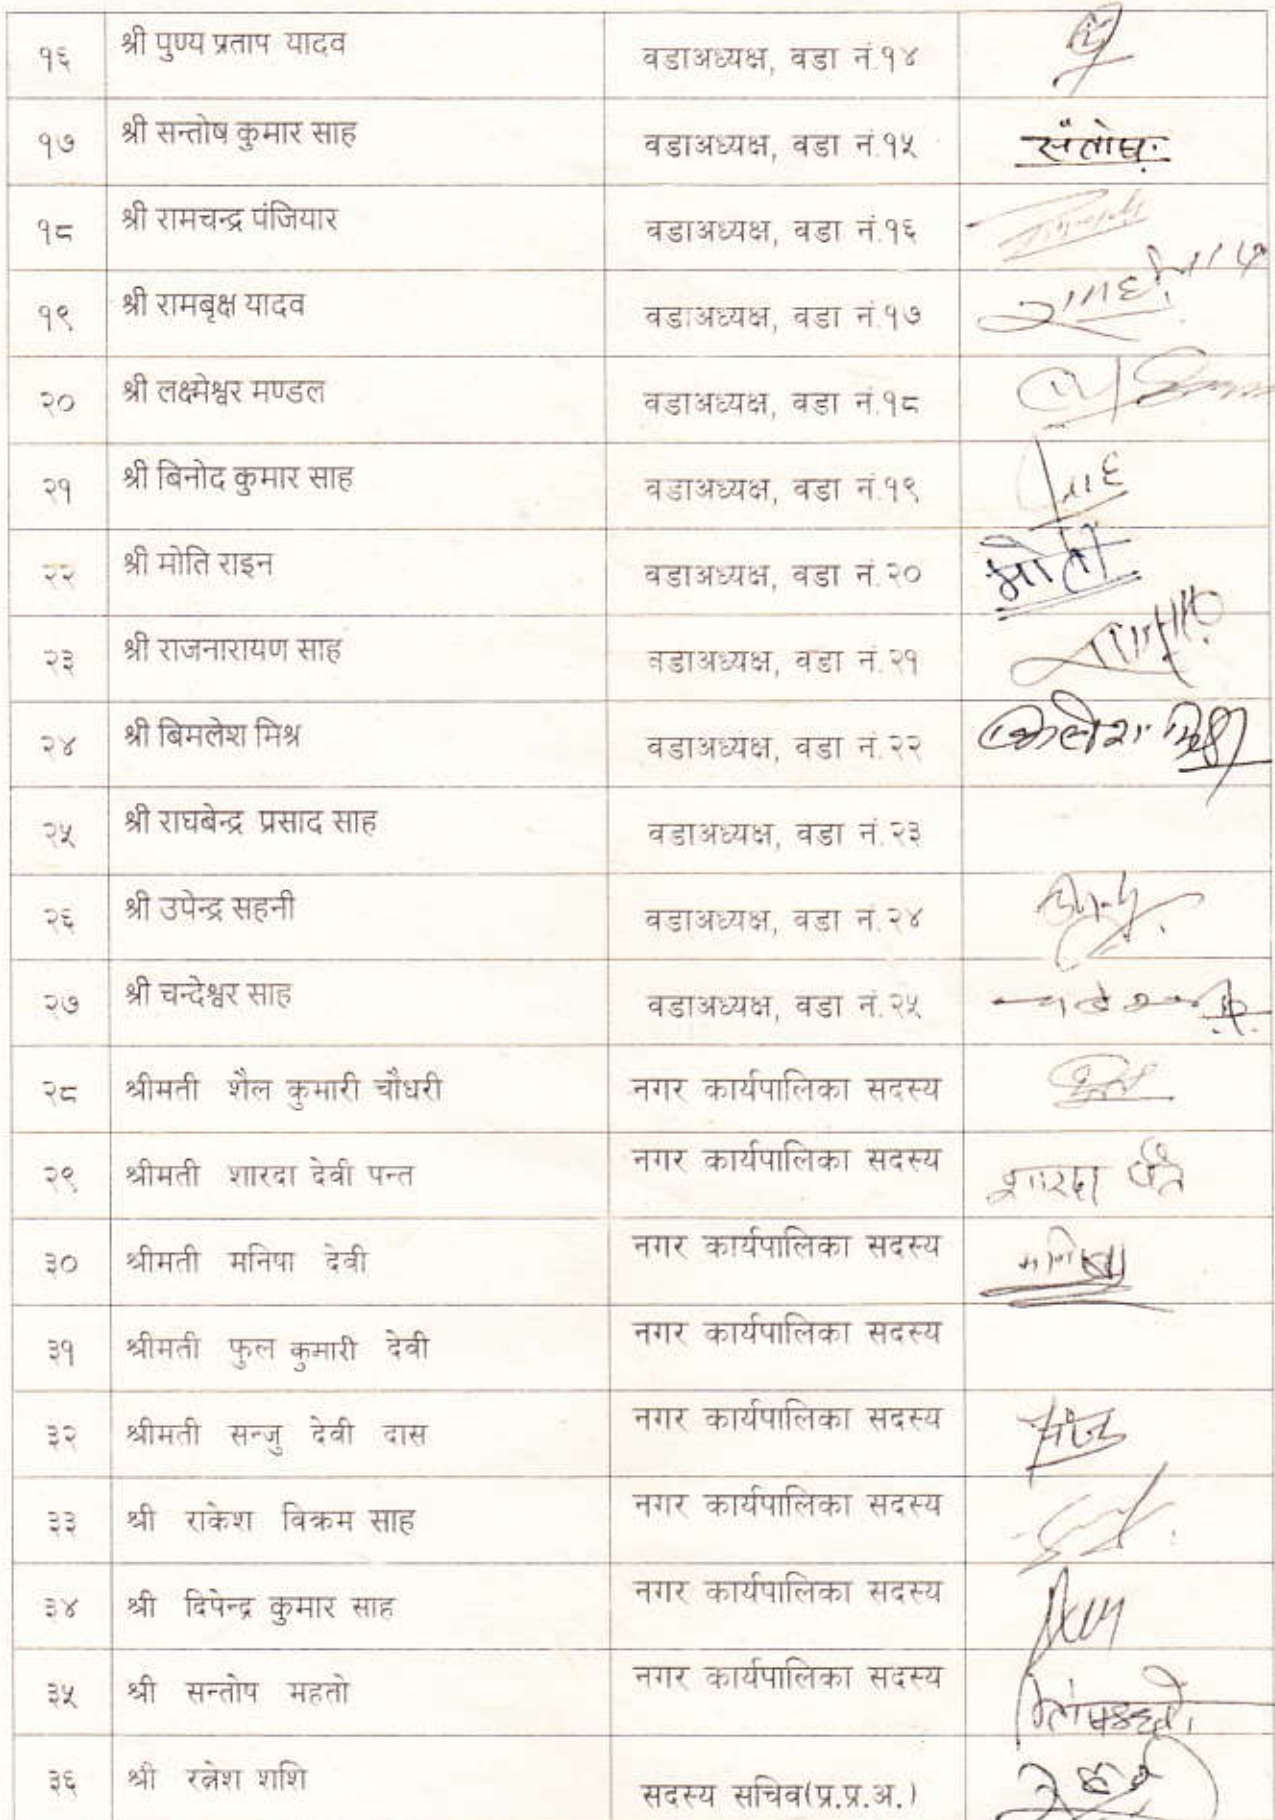 १६ श्री पुण्य प्रताप यादव वडाअध्यक्ष, वडा नं.१४
१७ श्री सन्तोष कुमार साह वडाअध्यक्ष, वडा नं.१५ संतोष
१८ श्री रामचन्द्र पंजियार वडाअध्यक्ष, वडा नं.१६
१९ श्री रामबृक्ष यादव वडाअध्यक्ष, वडा नं.१७
२० श्री लक्ष्मेश्वर मण्डल वडाअध्यक्ष, वडा नं.१८
२१ श्री बिनोद कुमार साह वडाअध्यक्ष, वडा नं.१९
२२ श्री मोति राइन वडाअध्यक्ष, वडा नं.२० मोती
२३ श्री राजनारायण साह वडाअध्यक्ष, वडा नं.२१
२४ श्री बिमलेश मिश्र वडाअध्यक्ष, वडा नं.२२
२५ श्री राघबेन्द्र प्रसाद साह वडाअध्यक्ष, वडा नं.२३
२६ श्री उपेन्द्र सहनी वडाअध्यक्ष, वडा नं.२४
२७ श्री चन्देश्वर साह वडाअध्यक्ष, वडा नं.२५
२८ श्रीमती शैल कुमारी चौधरी नगर कार्यपालिका सदस्य
२९ श्रीमती शारदा देवी पन्त नगर कार्यपालिका सदस्य शारदा पंत
३० श्रीमती मनिषा देवी नगर कार्यपालिका सदस्य मनिषा
३१ श्रीमती फुल कुमारी देवी नगर कार्यपालिका सदस्य
३२ श्रीमती सन्जु देवी दास नगर कार्यपालिका सदस्य
३३ श्री राकेश विक्रम साह नगर कार्यपालिका सदस्य
३४ श्री दिपेन्द्र कुमार साह नगर कार्यपालिका सदस्य
३५ श्री सन्तोष महतो नगर कार्यपालिका सदस्य
३६ श्री रत्नेश शशि सदस्य सचिव(प्र.प्र.अ.)